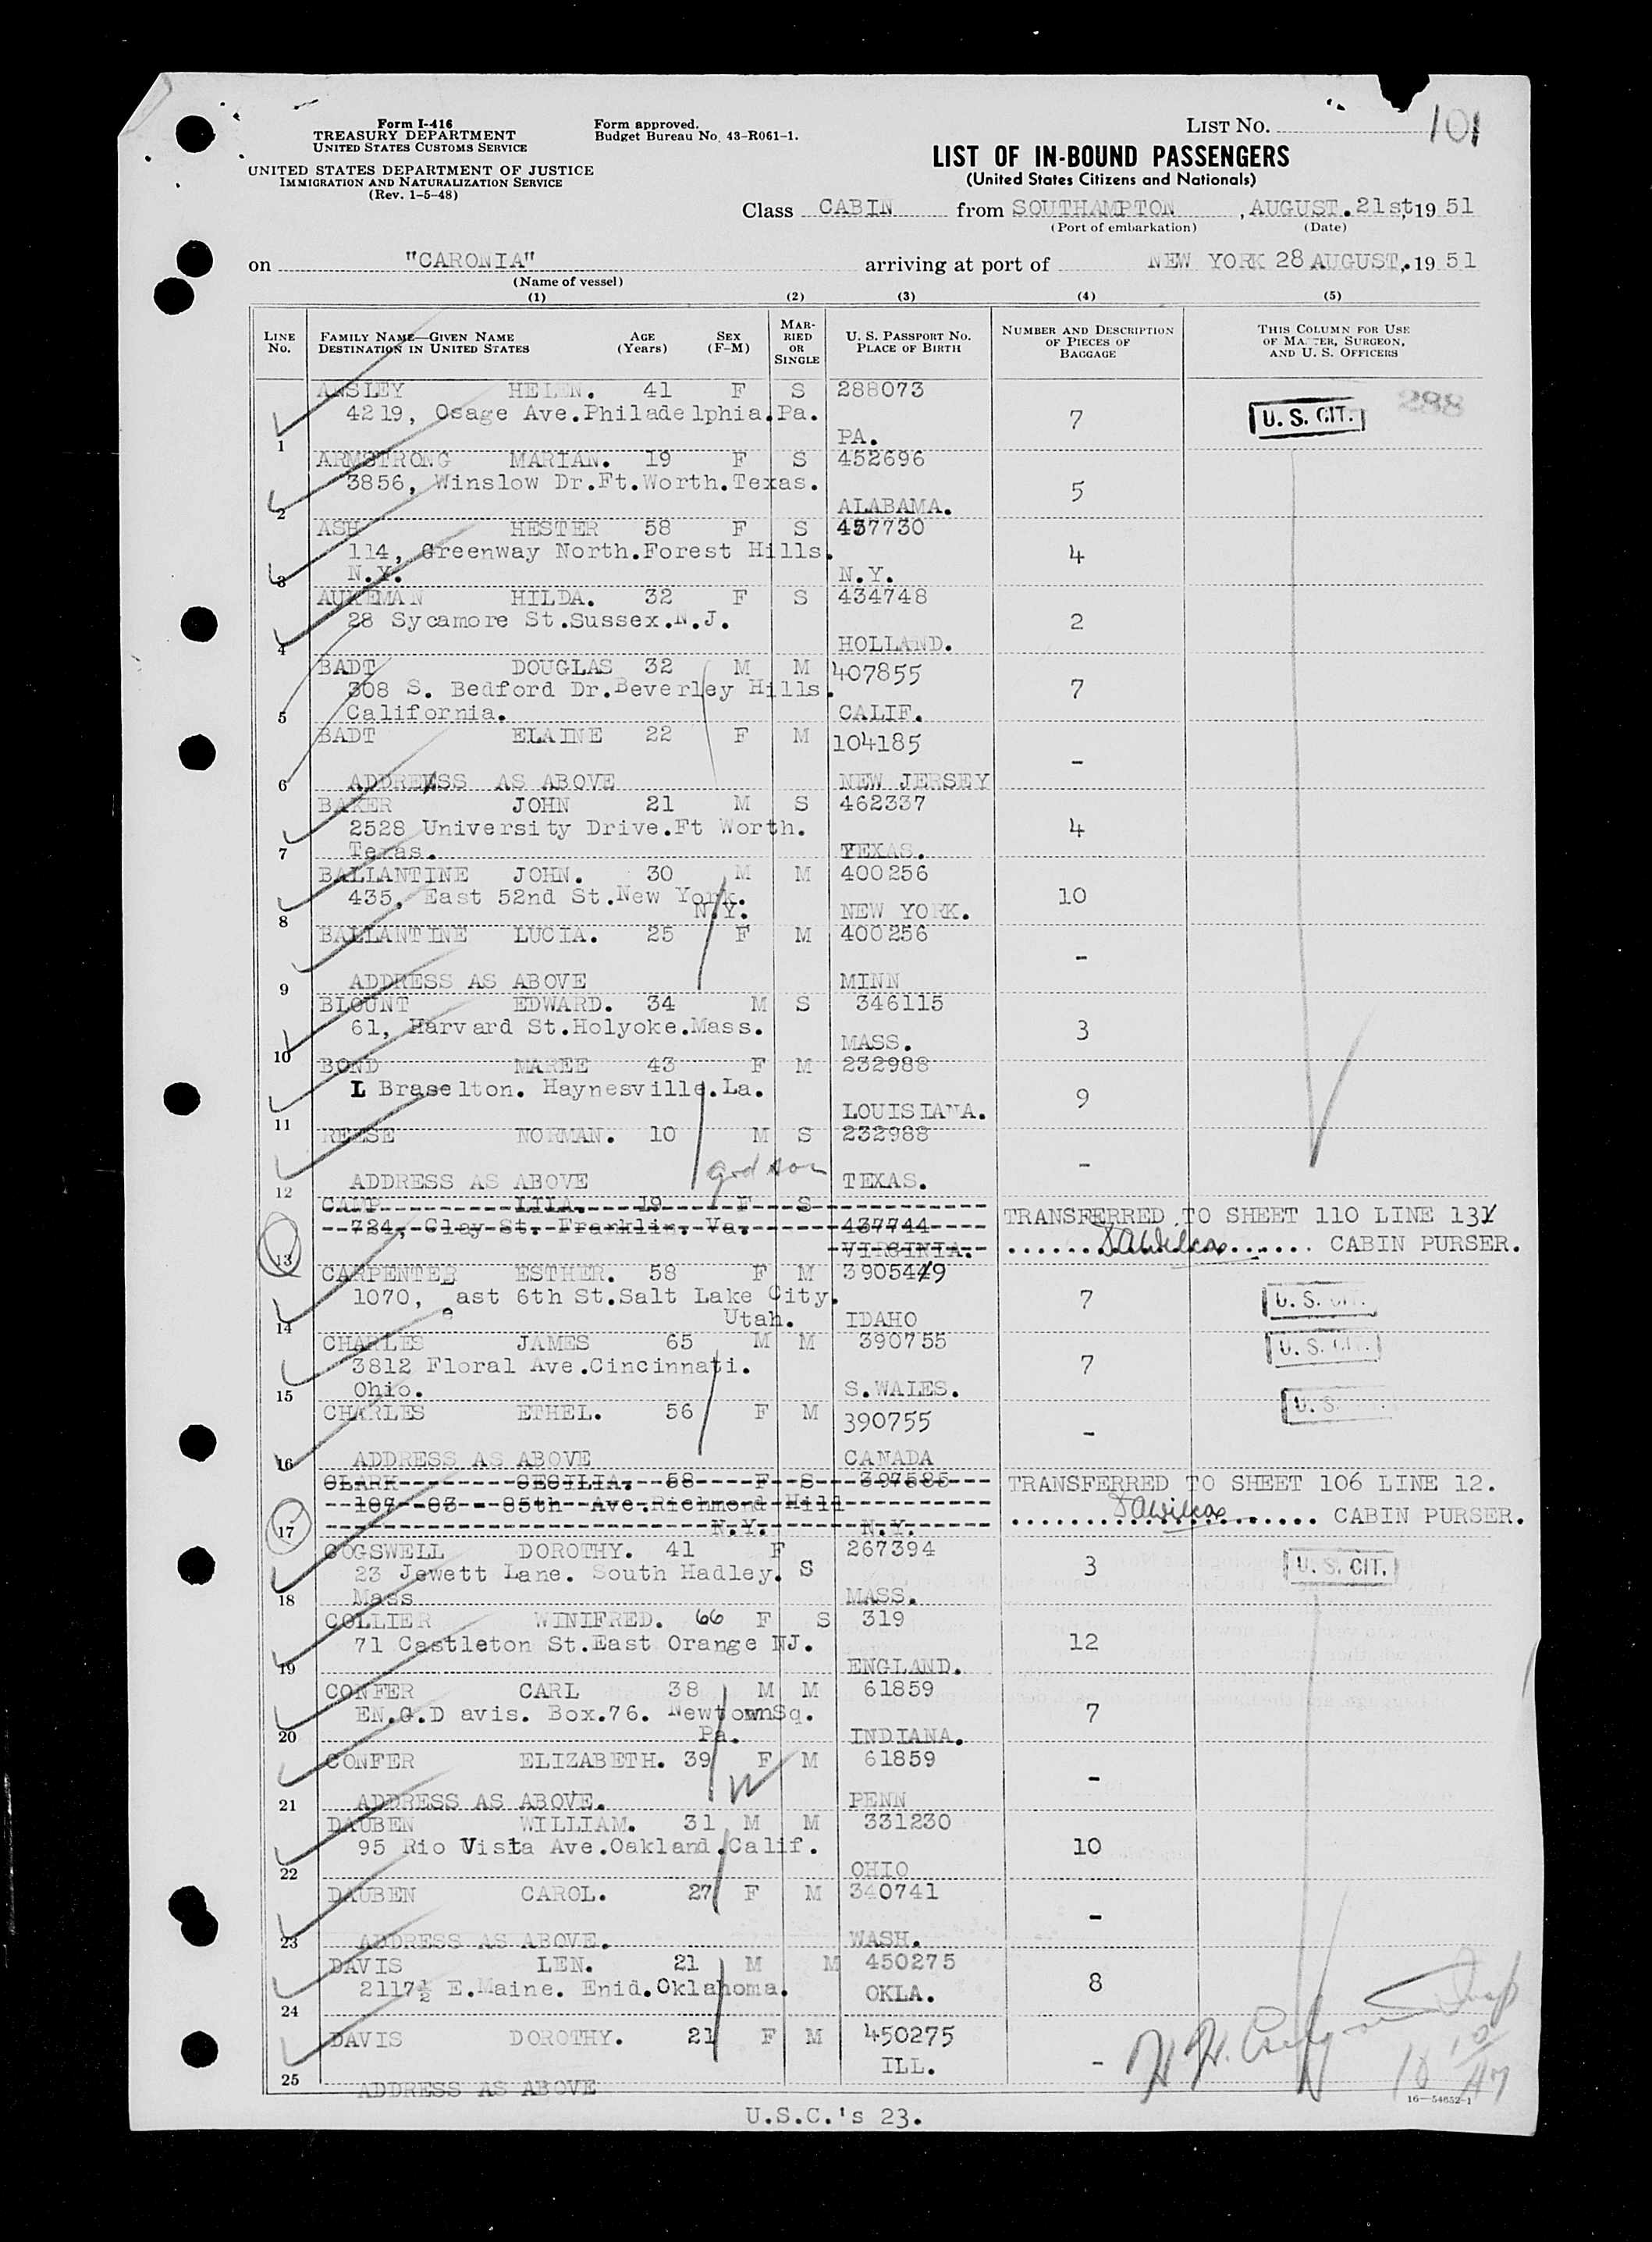 Form I-416
TREASURY DEPARTMENT
UNITED STATES CUSTOMS SERVICE
UNITED STATES DEPARTMENT OF JUSTICE
IMMIGRATION AND NATURALIZATION SERVICE
(Rev. 1-5-48)
Form approved.
Budget Bureau No. 43-R061-1.
LIST NO. 101
LIST OF IN-BOUND PASSENGERS
(United States Citizens and Nationals)
Class CABIN from SOUTHAMPTON, AUGUST.21st,1951
(Port of embarkation) (Date)
on "CARONIA" arriving at port of NEW YORK 28 AUGUST,.1951
(Name of vessel)
(1) (2) (3) (4) (5)
LINE NO.
FAMILY NAME—GIVEN NAME
DESTINATION IN UNITED STATES
AGE (Years)
SEX (F-M)
MARRIED OR SINGLE
U. S. PASSPORT NO.
PLACE OF BIRTH
NUMBER AND DESCRIPTION OF PIECES OF BAGGAGE
THIS COLUMN FOR USE OF MASTER, SURGEON, AND U. S. OFFICERS
ANSLEY HELEN. 41 F S 288073
4219, Osage Ave.Philadelphia.Pa. 7 U. S. CIT. 288
1 PA.
ARMSTRONG MARIAN. 19 F S 452696
3856, Winslow Dr.Ft.Worth.Texas. 5
2 ALABAMA.
ASH HESTER 58 F S 457730
114, Greenway North.Forest Hills. 4
3 N.Y. N.Y.
AUKEMAN HILDA. 32 F S 434748
28 Sycamore St.Sussex.N.J. 2
4 HOLLAND.
BADT DOUGLAS 32 M M 407855
308 S. Bedford Dr.Beverley Hills. 7
5 California. CALIF.
BADT ELAINE 22 F M 104185
-
6 ADDRESS AS ABOVE NEW JERSEY
BAKER JOHN 21 M S 462337
2528 University Drive.Ft Worth. 4
7 Texas. TEXAS.
BALLANTINE JOHN. 30 M M 400256
435, East 52nd St.New York. 10
8 N.Y. NEW YORK.
BALLANTINE LUCIA. 25 F M 400256
-
9 ADDRESS AS ABOVE MINN
BLOUNT EDWARD. 34 M S 346115
61, Harvard St.Holyoke.Mass. 3
10 MASS.
BOND MAREE 43 F M 232988
L Braselton. Haynesville.La. 9
11 LOUISIANA.
REESE NORMAN. 10 M S 232988
godson -
12 ADDRESS AS ABOVE TEXAS.
CAMP LILA. 19 F S
724, Clay St. Franklin. Va. 437744 TRANSFERRED TO SHEET 110 LINE 13
13 VIRGINIA. ........ CABIN PURSER.
CARPENTER ESTHER. 58 F M 390549
1070, east 6th St.Salt Lake City. 7 U. S. CIT.
14 Utah. IDAHO
CHARLES JAMES 65 M M 390755 U. S. CIT.
3812 Floral Ave.Cincinnati. 7
15 Ohio. S.WALES.
CHARLES ETHEL. 56 F M 390755 U. S.
-
16 ADDRESS AS ABOVE CANADA
CLARK CECILIA. 58 F S 397585 TRANSFERRED TO SHEET 106 LINE 12.
107 - 03 - 85th Ave.Richmond Hill
17 N.Y. N.Y. ........ CABIN PURSER.
COGSWELL DOROTHY. 41 F S 267394
23 Jewett Lane. South Hadley. 3 U. S. CIT.
18 Mass MASS.
COLLIER WINIFRED. 66 F S 319
71 Castleton St.East Orange NJ. 12
19 ENGLAND.
CONFER CARL 38 M M 61859
EN.G.D avis. Box.76. NewtownSq. 7
20 Pa. INDIANA.
CONFER ELIZABETH. 39 F M 61859
-
21 ADDRESS AS ABOVE. PENN
DAUBEN WILLIAM. 31 M M 331230
95 Rio Vista Ave.Oakland.Calif. 10
22 OHIO
DAUBEN CAROL. 27 F M 340741
-
23 ADDRESS AS ABOVE. WASH.
DAVIS LEN. 21 M M 450275
2117½ E.Maine. Enid.Oklahoma. OKLA. 8
24
DAVIS DOROTHY. 21 F M 450275
ILL. -
25 ADDRESS AS ABOVE
16—54652-1
U.S.C.'s 23.